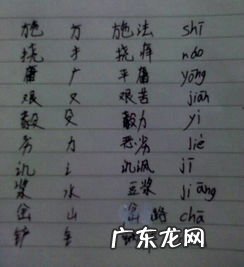 施 方 施法 shī
挠 扌 挠痒 náo
庸 广 平庸 yōng
艰 又 艰苦 jiān
毅 殳 毅力 yì
劣 力 恶劣 liè
讥 讠 讥讽 jī
浆 水 豆浆 jiāng
岔 山 岔路 chà
铲 钅
广东龙网
www.